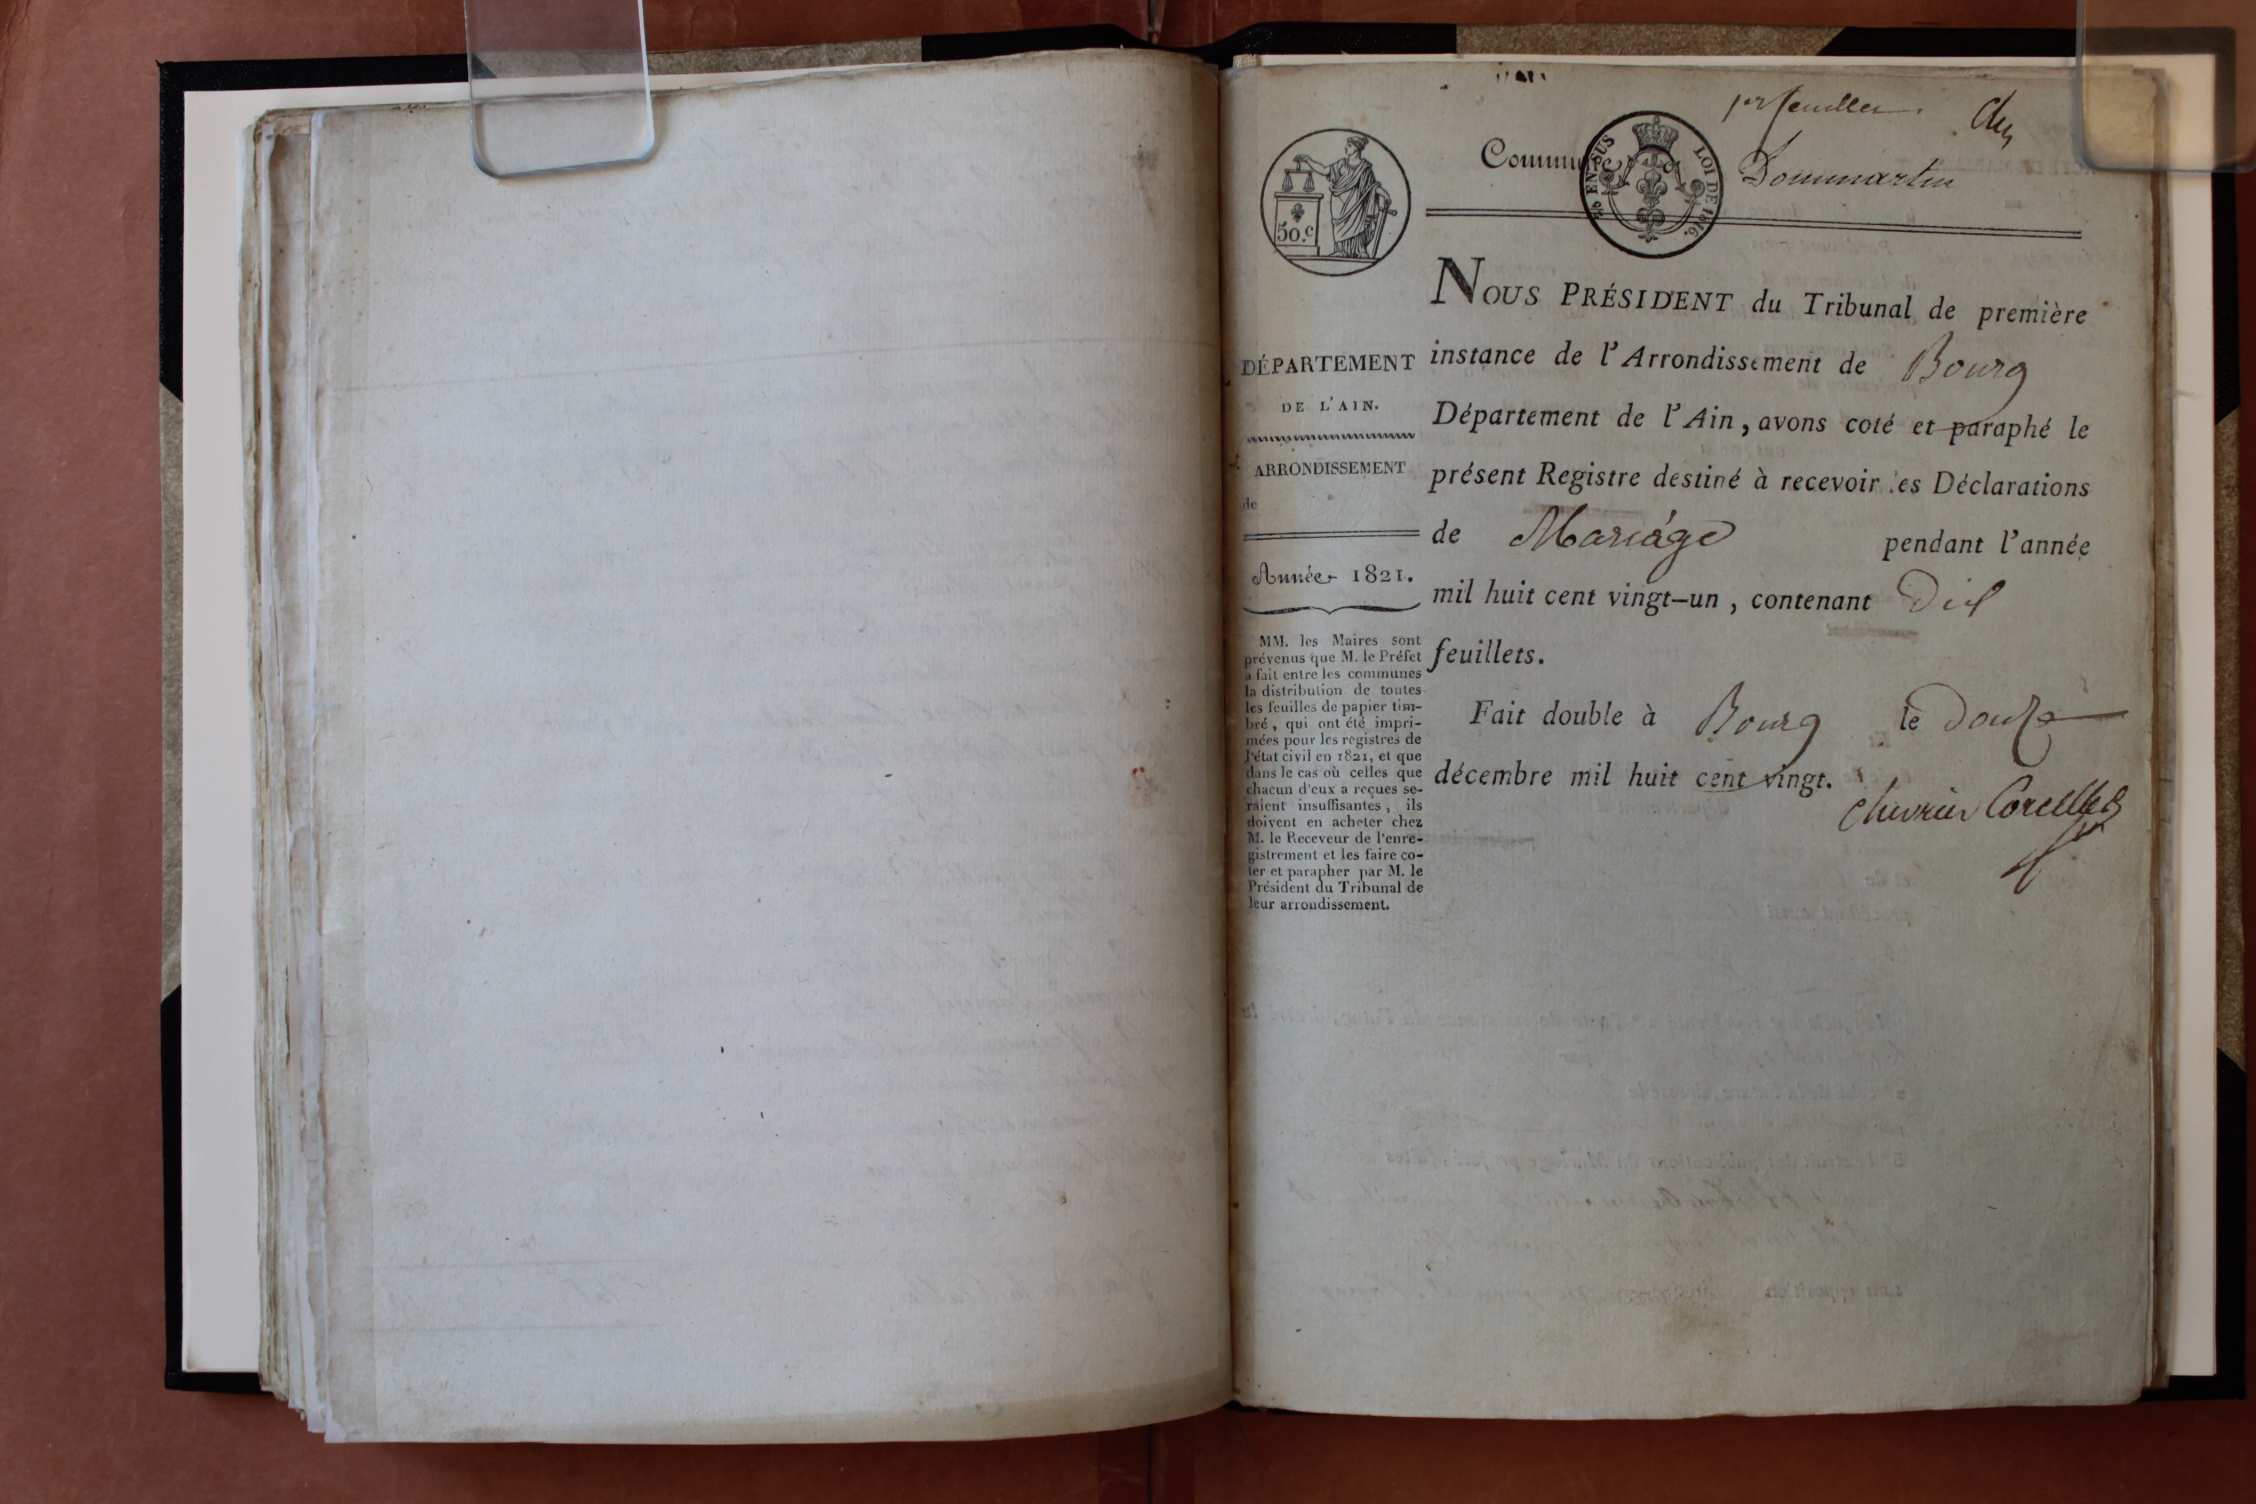 1er feuillet.
Commune
Dommartin
5/s EN SUS
LOI DE 1816.
50.c
DÉPARTEMENT
DE L'AIN.
ARRONDISSEMENT
de
Année 1821.
MM. les Maires sont
prévenus que M. le Préfet
a fait entre les communes
la distribution de toutes
les feuilles de papier tim-
bré, qui ont été impri-
mées pour les registres de
l'état civil en 1821, et que
dans le cas où celles que
chacun d'eux a reçues se-
raient insuffisantes, ils
doivent en acheter chez
M. le Receveur de l'enre-
gistrement et les faire co-
ter et parapher par M. le
Président du Tribunal de
leur arrondissement.
NOUS PRÉSIDENT du Tribunal de première
instance de l'Arrondissement de Bourg
Département de l'Ain, avons coté et paraphé le
présent Registre destiné à recevoir les Déclarations
de Mariage pendant l'année
mil huit cent vingt-un, contenant Dix
feuillets.
Fait double à Bourg le Douze
décembre mil huit cent vingt.
Chevrier Corcelles